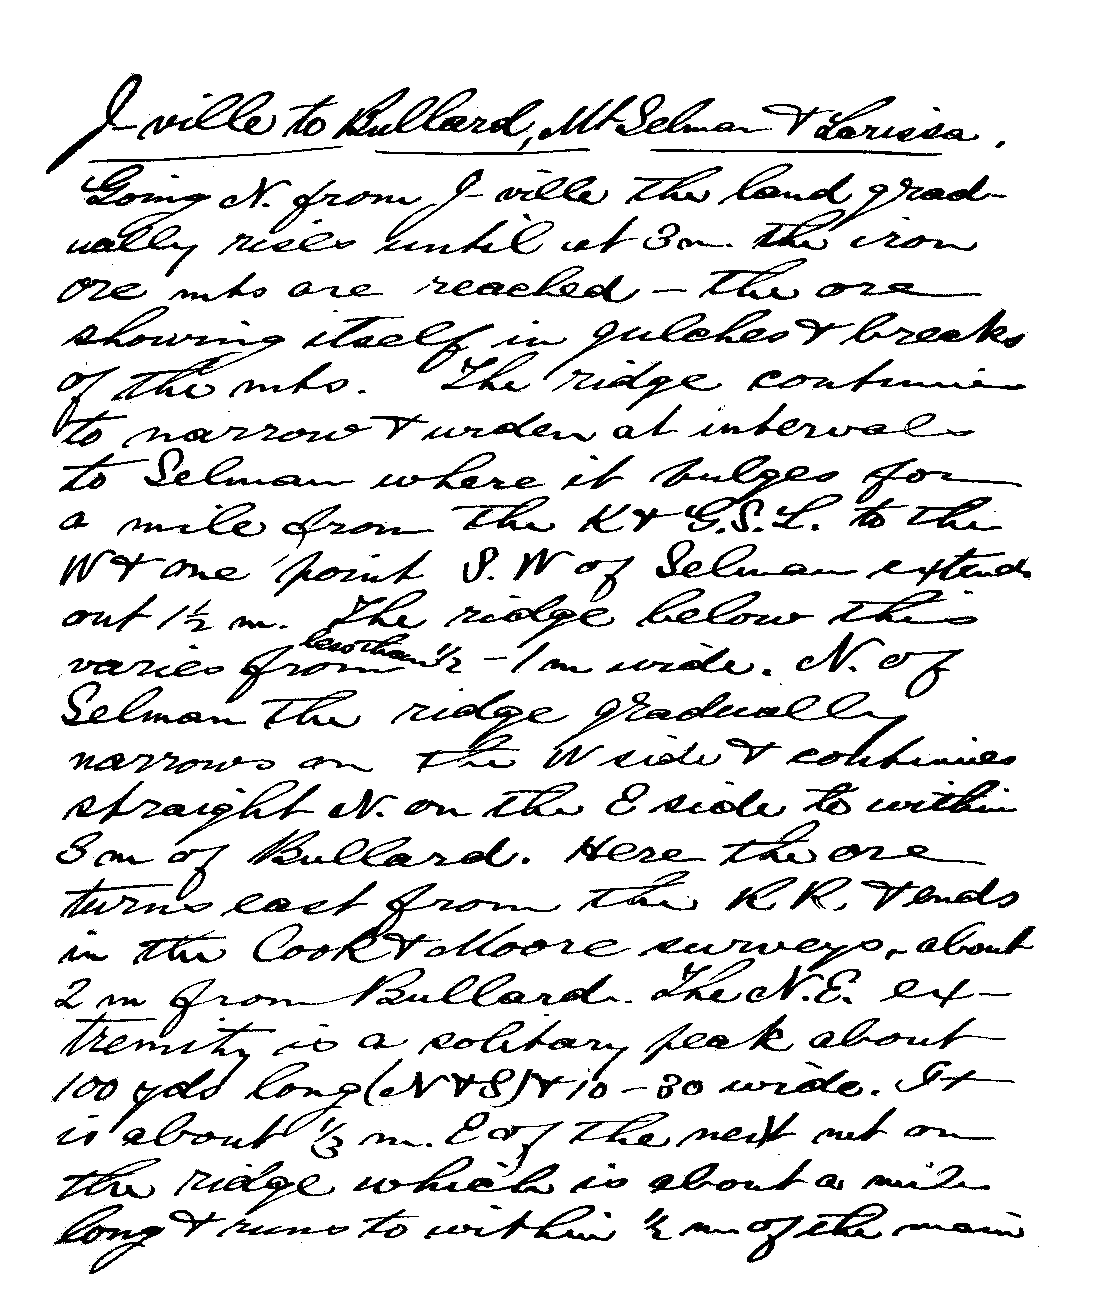 J-ville to Bullard, Mt Selman & Larissa.
Going N. from J-ville the land grad-
ually rises until at 3 m. the iron
ore mts are reached – the ore
showing itself in gulches & breaks
of the mts. The ridge continues
to narrow & widen at intervals
to Selman where it bulges for
a mile from the K & G.S.L. to the
W & one point S.W of Selman extends
out 1½ m. The ridge below this
varies from less than ½ – 1 m wide. N. of
Selman the ridge gradually
narrows on the W side & continues
straight N. on the E side to within
3 m of Bullard. Here the ore
turns east from the R R. & ends
in the Cook & Moore surveys, about
2 m from Bullard. The N.E. ex-
tremity is a solitary peak about
100 yds long (N & S) & 10 – 30 wide. It
is about ⅓ m. E of the next mt on
the ridge which is about a mile
long & runs to within ½ m of the main